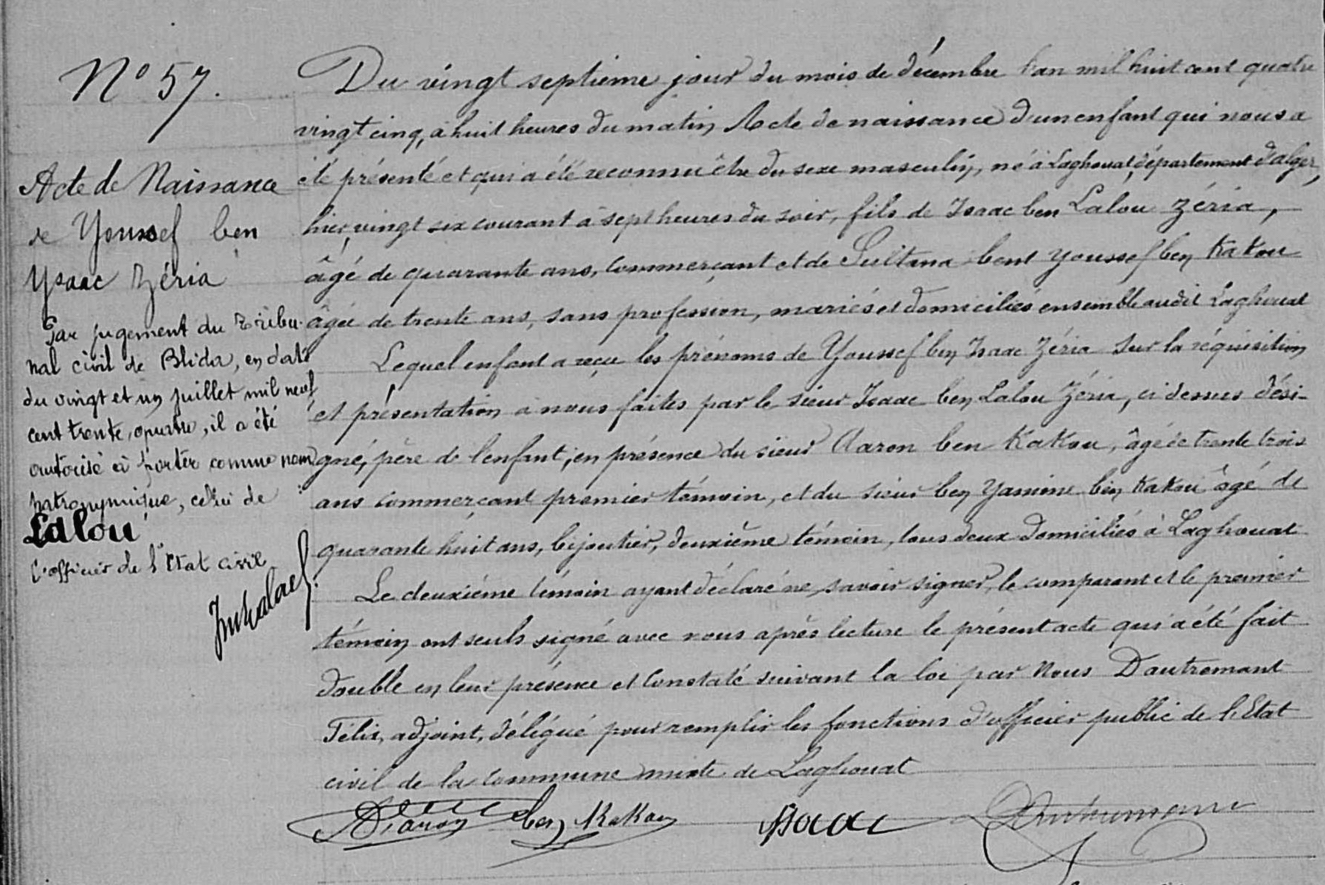 N° 57.
Acte de Naissance
de Youssef ben
Ysaac Zéria
Par jugement du Tribu-
nal civil de Blida, en date
du vingt et un juillet mil neuf
cent trente quatre, il a été
autorisé à porter comme nom
patronymique, celui de
Lalou
L'officier de l'Etat civil
Du vingt septième jour du mois de décembre l'an mil huit cent quatre
vingt cinq, à huit heures du matin, Acte de naissance d'un enfant qui nous a
été présenté et qui a été reconnu être du sexe masculin, né à Laghouat, département d'alger,
hier, vingt six courant à sept heures du soir, fils de Isaac ben Lalou Zéria,
âgé de quarante ans, commerçant et de Sultana bent Youssef ben Kakou
âgée de trente ans, sans profession, mariés et domiciliés ensemble audit Laghouat
Lequel enfant a reçu les prénoms de Youssef ben Isaac Zéria sur la réquisition
et présentation à nous faites par le sieur Isaac ben Lalou Zéria, ci dessus dési-
gné, père de l'enfant, en présence du sieur Aaron ben Kakou, âgé de trente trois
ans commerçant premier témoin, et du sieur ben Yamine ben Kakou âgé de
quarante huit ans, bijoutier, deuxième témoin, tous deux domiciliés à Laghouat
Le deuxième témoin ayant déclaré ne savoir signer, le comparant et le premier
témoin ont seuls signé avec nous après lecture le présent acte qui a été fait
double en leur présence et constaté suivant la loi par Nous Dautremant
Félix, adjoint, délégué pour remplir les fonctions d'officier public de l'Etat
civil de la commune mixte de Laghouat
Aaron ben Kakou Isaac Dautremant